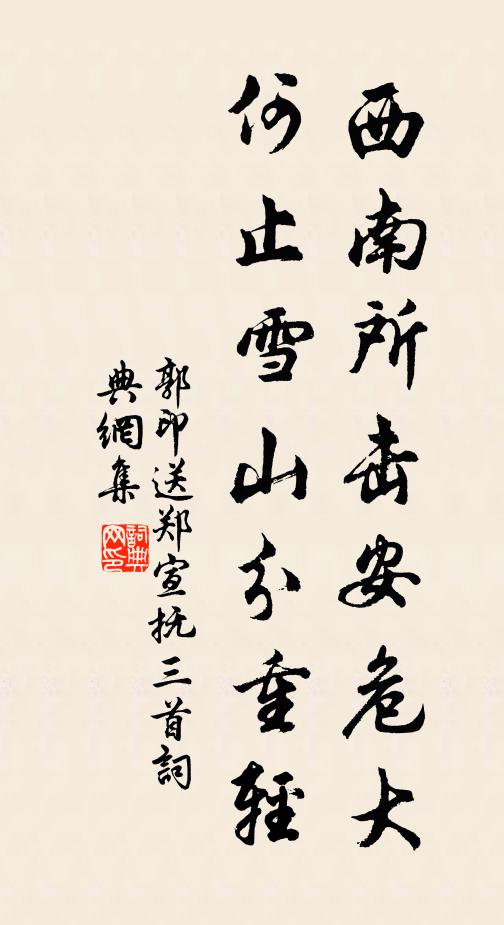 西南所击安危大
何止雪山分重輕
郭印送郑宣抚三首詞
典網集
詞典网印